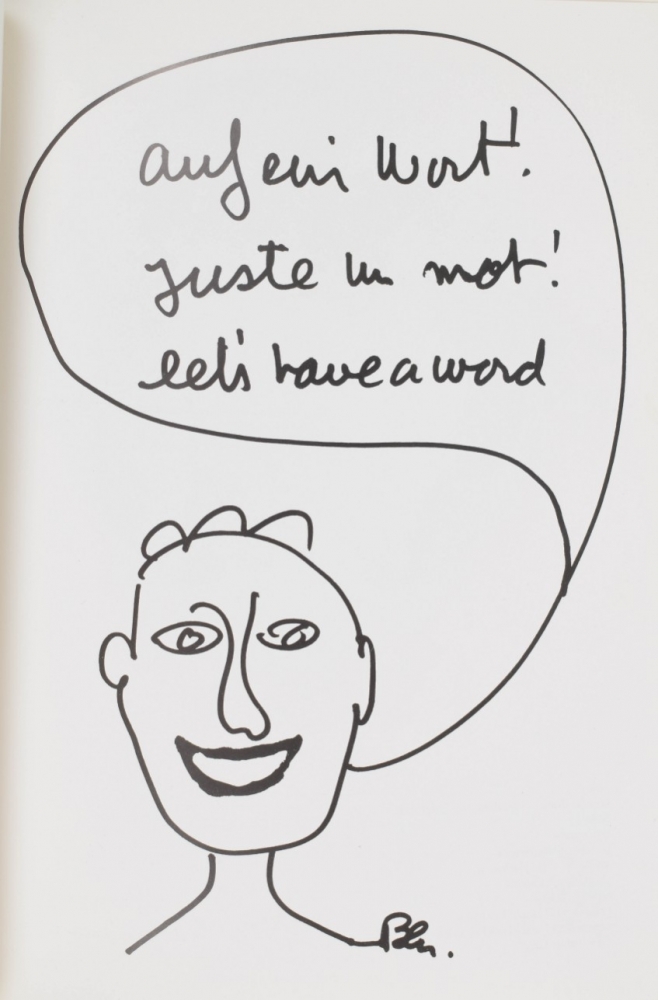 auf ein Wort!
juste un mot!
let's have a word